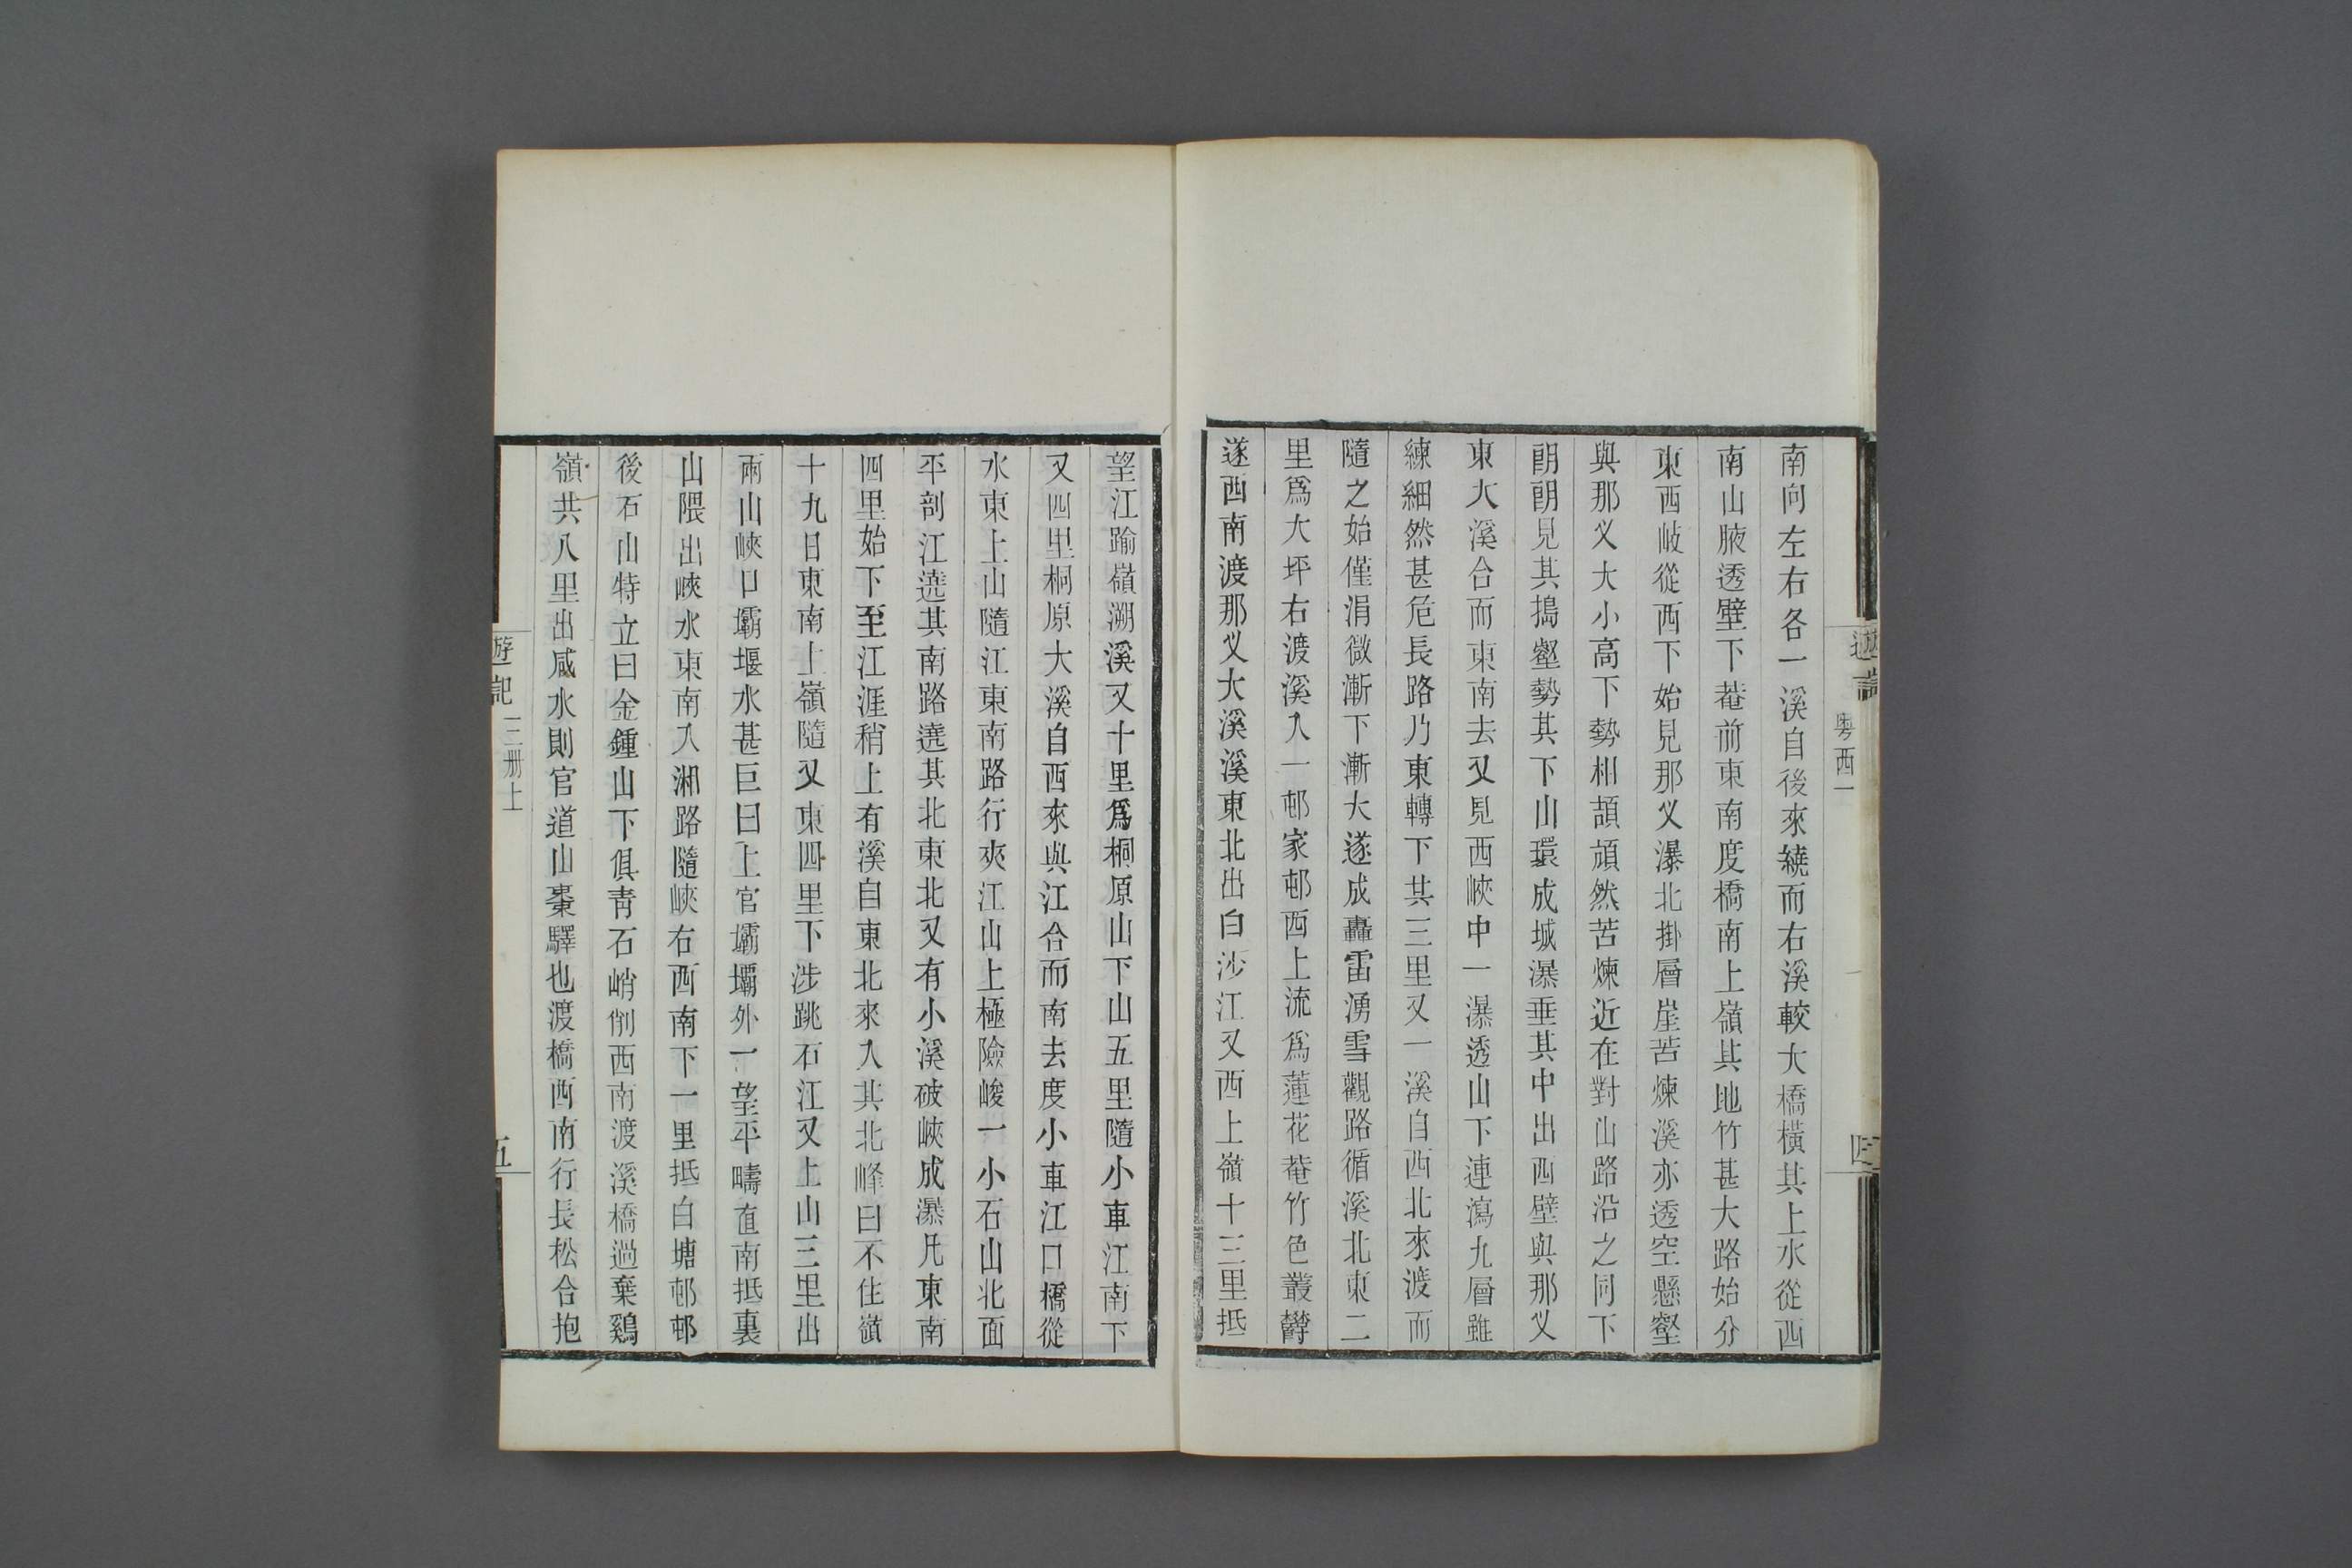 遊記
粵西一
四
南向左右各一溪自後來繞而右溪較大橋橫其上水從西
南山腋透壁下菴前東南度橋南上嶺其地竹甚大路始分
東西岐從西下始見那义瀑北掛層崖苦煉溪亦透空懸壑
與那义大小高下勢相頡頏然苦煉近在對山路沿之同下
朗朗見其搗壑勢其下山環成城瀑垂其中出西壁與那义
東大溪合而東南去又見西峽中一瀑透山下連瀉九層雖
練細然甚危長路乃東轉下共三里又一溪自西北來渡而
隨之始僅涓微漸下漸大遂成轟雷湧雪觀路循溪北東二
里爲大坪右渡溪入一邨家邨西上流爲蓮花菴竹色叢欝
遂西南渡那义大溪溪東北出白沙江又西上嶺十三里抵
望江踰嶺溯溪又十里爲桐原山下山五里隨小車江南下
又四里桐原大溪自西來與江合而南去度小車江口橋從
水東上山隨江東南路行夾江山上極險峻一小石山北面
平剖江遶其南路遶其北東北又有小溪破峽成瀑凡東南
四里始下至江涯稍上有溪自東北來入其北峰曰不住嶺
十九日東南上嶺隨又東四里下涉跳石江又上山三里出
兩山峽口壩堰水甚巨曰上官壩壩外一望平疇直南抵裏
山隈出峽水東南入湘路隨峽右西南下一里抵白塘邨邨
後石山特立曰金鍾山下俱靑石峭削西南渡溪橋過棄鷄
嶺共八里出咸水則官道山棗驛也渡橋西南行長松合抱
遊記
三册上
五